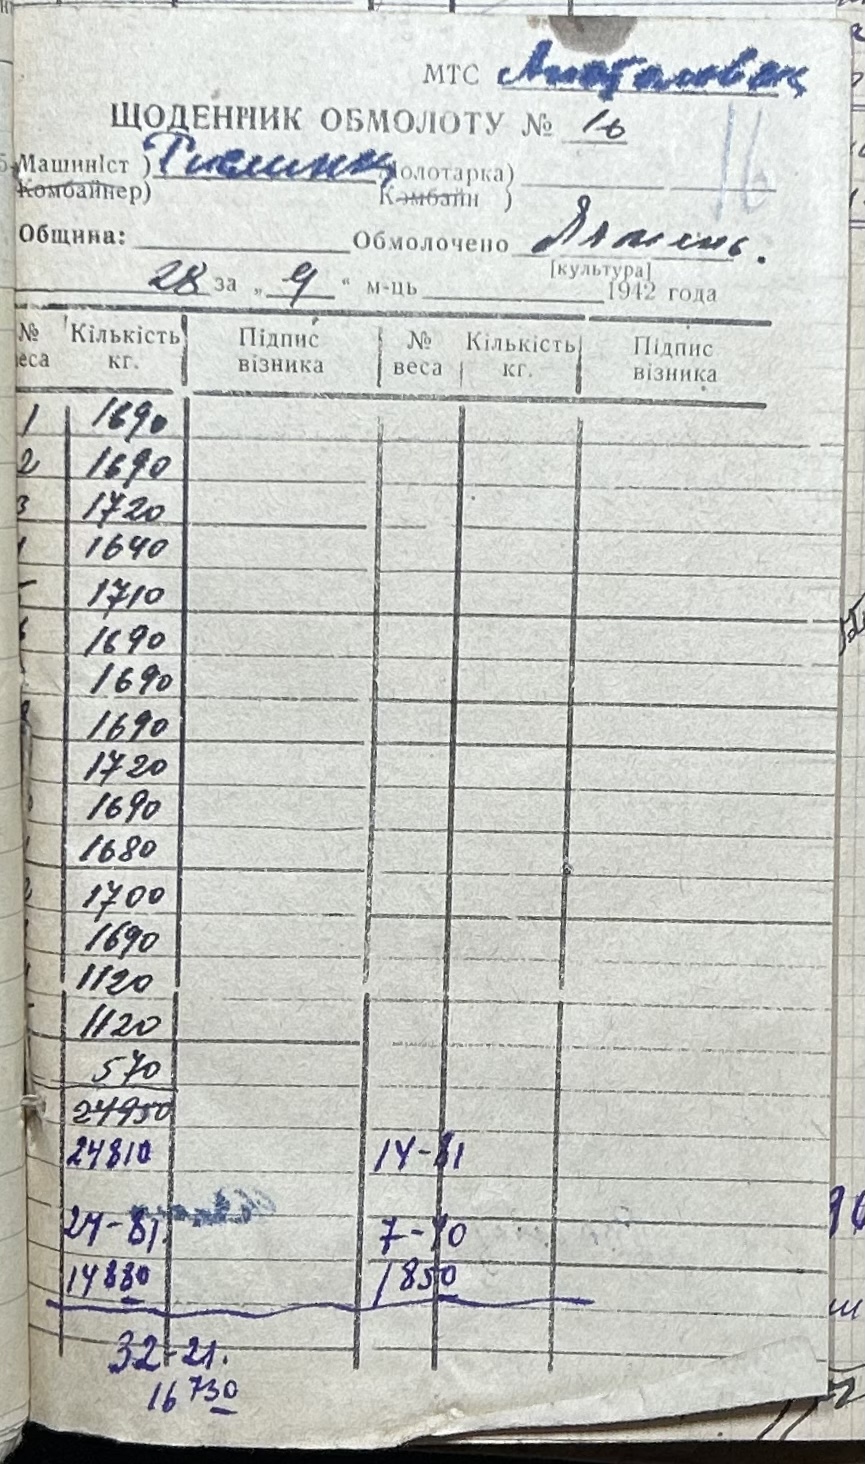 МТС Анатоловська
ЩОДЕННИК ОБМОЛОТУ № 16
16
Машиніст ) Молотарка)
Комбайнер) Комбайн )
Община: Обмолочено Ячмень.
[культура]
28 за „ 9 “ м-ць 1942 года
№ веса Кількість кг. Підпис візника № веса Кількість кг. Підпис візника
1 1690
2 1690
3 1720
1640
1710
1690
1690
8 1690
1720
1690
1680
2 1700
1690
1120
1120
570
24950
24810 14-81
24-81. 7-40
14880 1850
32-21.
16730